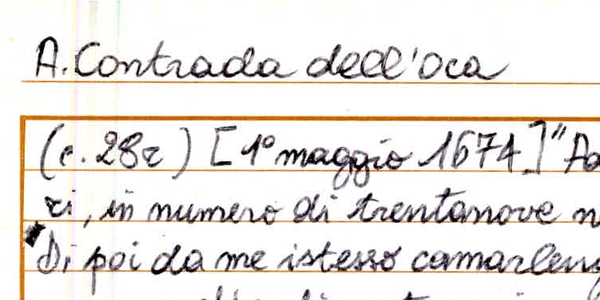 A. Contrada dell'Oca
(c. 28r) [1° maggio 1674] "Ad
ri, in numero di trentanove n
Di poi da me istesso camarleng